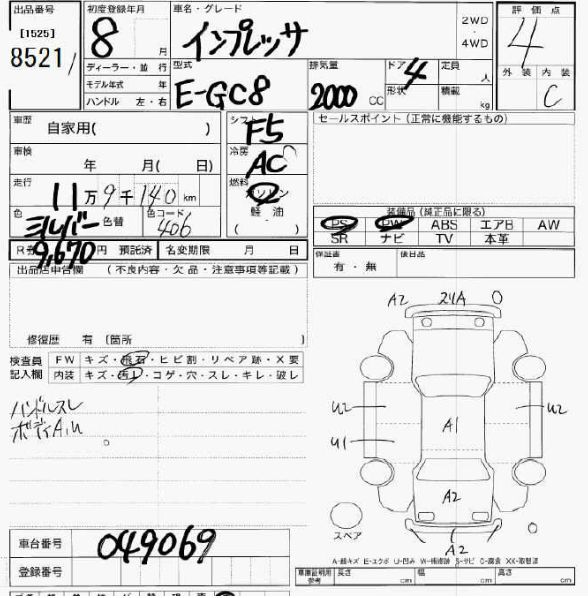 出品番号 初度登録年月 車名・グレード 評価点
[1525] 8 月 インプレッサ 2WD・4WD 4
8521 ディーラー・並行 型式 排気量 ドア 4 定員 人 外装 内装
モデル年式 年 E-GC8 2000 CC 形状 積載 kg C
ハンドル 左・右
車歴 自家用( ) シフト F5 セールスポイント(正常に機能するもの)
車検 年 月( 日) 冷房 AC
走行 11万9千140km 燃料 ガソリン
色 シルバー 色替 色コード 406 軽油 ( ) 装備品(純正品に限る)
PS PW ABS エアB AW
SR ナビ TV 本革
9,670円 預託済 名変期限 月 日
保証書 有・無 後日品
出品店申告欄 (不良内容・欠品・注意事項等記載)
修復歴 有 (箇所 )
検査員 FW キズ・飛石・ヒビ割・リペア跡・X要
記入欄 内装 キズ・汚レ・コゲ・穴・スレ・キレ・破レ
ハンドルスレ
ボディA,U
A2 O
U2 U2
U1 A1
A2
スペア
A2
車台番号 049069
登録番号
A-線キズ E-エクボ U-凹み
車庫証明用参考 長さ cm 幅 cm 高さ cm